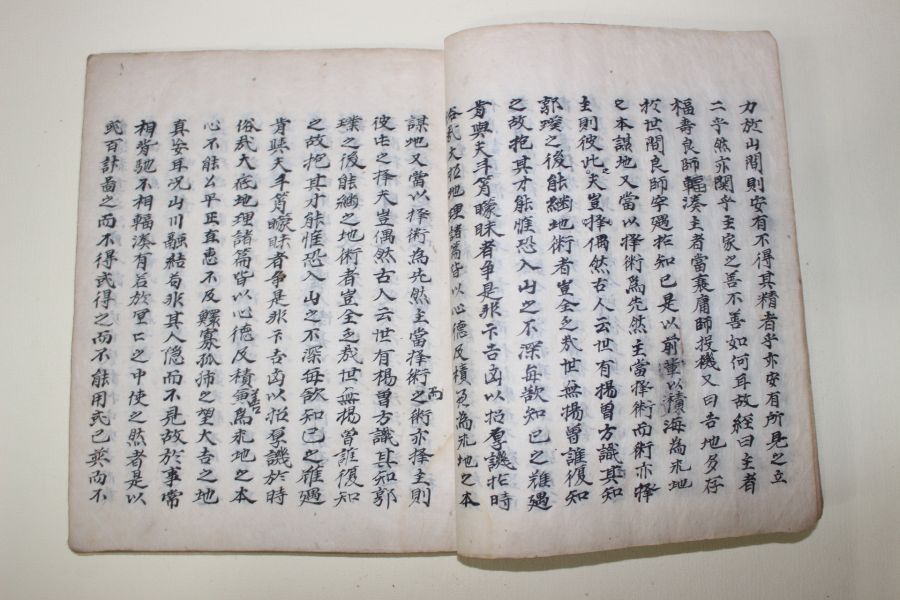 力於山間則安有不得其精者乎亦安有所見之立
二乎然亦関乎主家之善不善如何耳故經曰主者
福壽良師輻湊主者當衰庸師投機又曰吉地多存
於世間良師罕遇於知己是以前輩以積海為求地
之本謀地又當以擇術為先然主當擇術而術亦擇
主則彼此之擇夫豈偶然古人云世有楊曽方識其知
郭璞之後能継地術者豈全乏哉世無楊曽誰復知
之故抱其才能惟恐入山之不深每欲知己之難遇
肯與天年箕矇昧者争是非卞吉凶以招辱譏於時
俗哉大抵地理諸篇皆以心德反積善為求地之本
謀地又當以擇術為先然主當擇術而術亦擇主則
彼此之擇夫豈偶然古人云世有楊曽方識其知郭
璞之後能継之地術者豈全乏哉世無楊曽誰復知
之故抱其才能惟恐入山之不深每欲知己之難遇
肯與天年箕矇昧者争是非卞吉凶以招辱譏於時
俗哉大底地理諸篇皆以心德反積善為求地之本
心不能公平正直惠不及鰥寡孤獨之望大吉之地
真妄耳况山川融結苟非其人隐而不見故於事常
相背馳不相輻湊有若於冥冥之中使之然者是以
或百計啚之而不得或得之而不能用或已葬而不